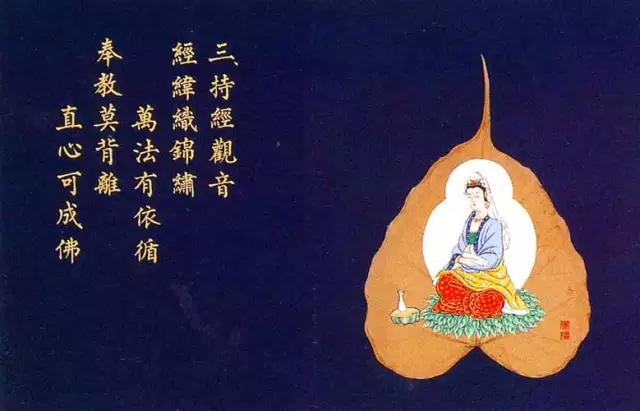 三、持經觀音
經緯織錦繡
萬法有依循
奉教莫背離
直心可成佛